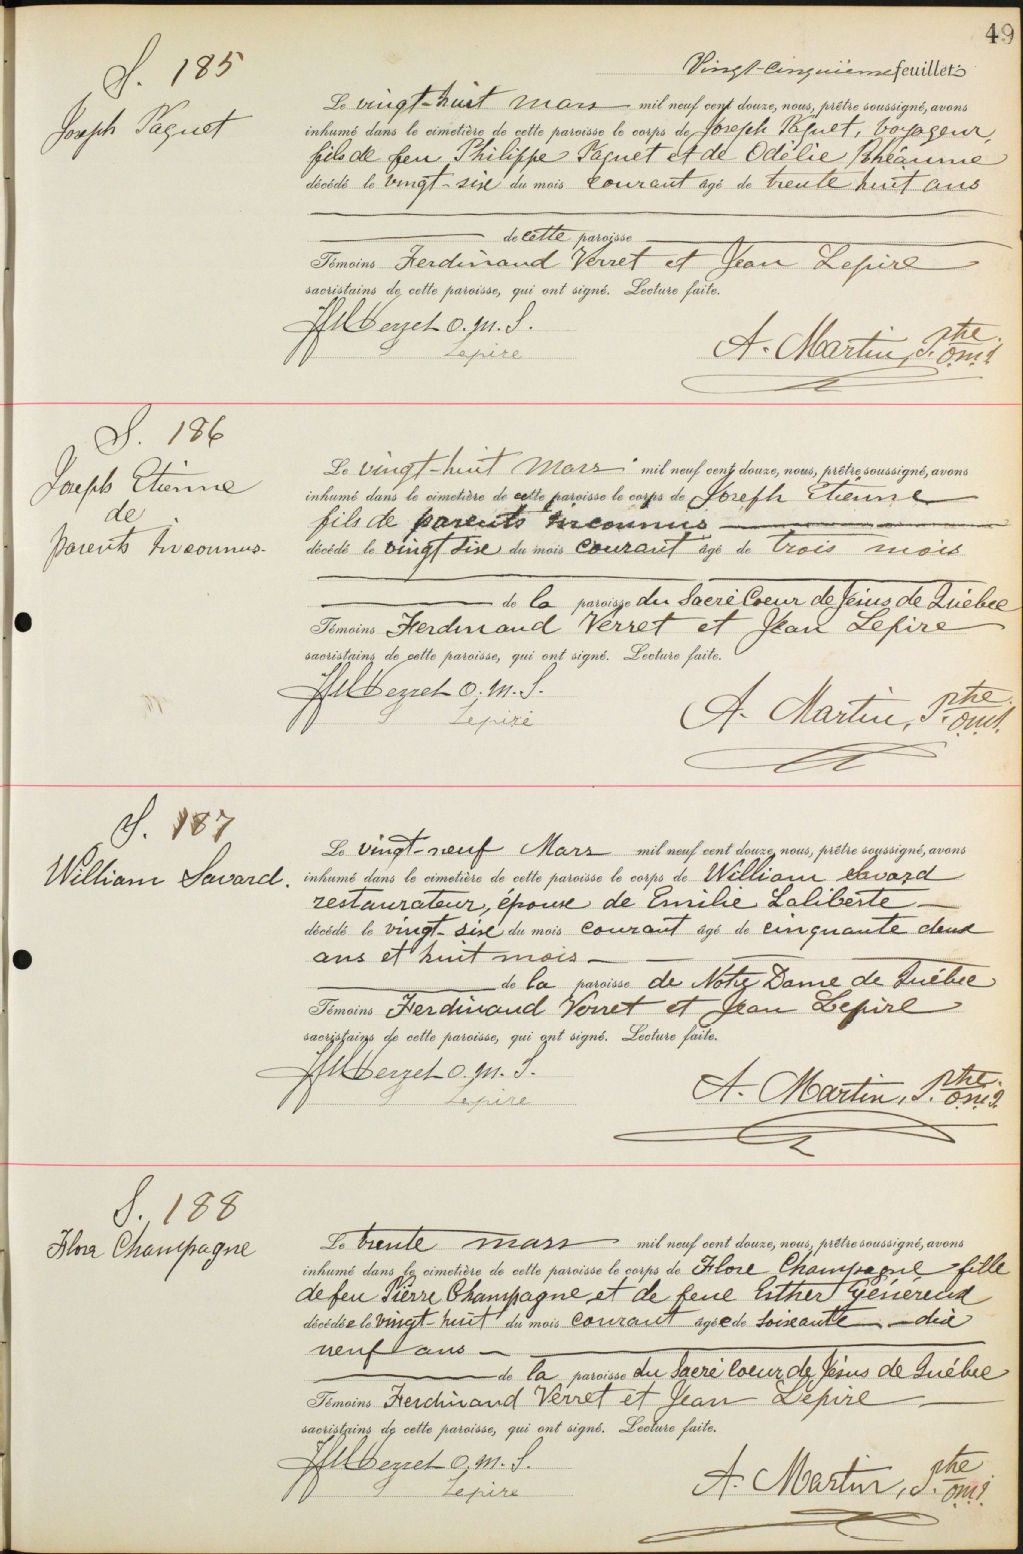 49
Vingt-cinquième feuillet
S. 185
Joseph Paquet
Le vingt-huit mars mil neuf cent douze, nous, prêtre soussigné, avons
inhumé dans le cimetière de cette paroisse le corps de Joseph Paquet, voyageur,
fils de feu Philippe Paquet et de Odélie Rhéaume
décédé le vingt-six du mois courant âgé de trente huit ans
de cette paroisse
Témoins Ferdinand Verret et Jean Lepire
sacristains de cette paroisse, qui ont signé. Lecture faite.
Verret O. M. S.
Lepire
A. Martin, Ptre O.M.I.
S. 186
Joseph Etienne
de
parents inconnus.
Le vingt-huit Mars mil neuf cent douze, nous, prêtre soussigné, avons
inhumé dans le cimetière de cette paroisse le corps de Joseph Etienne
fils de parents inconnus
décédé le vingt six du mois courant âgé de trois mois
de la paroisse du Sacré Coeur de Jésus de Québec
Témoins Ferdinand Verret et Jean Lepire
sacristains de cette paroisse, qui ont signé. Lecture faite.
Verret O. M. S.
Lepire
A. Martin, Ptre O.M.I.
S. 187
William Savard.
Le vingt-neuf Mars mil neuf cent douze, nous, prêtre soussigné, avons
inhumé dans le cimetière de cette paroisse le corps de William Savard
restaurateur, époux de Emilie Laliberté
décédé le vingt-six du mois courant âgé de cinquante deux
ans et huit mois
de la paroisse de Notre Dame de Québec
Témoins Ferdinand Verret et Jean Lepire
sacristains de cette paroisse, qui ont signé. Lecture faite.
Verret O. M. S.
Lepire
A. Martin, Ptre O.M.I.
S. 188
Flore Champagne
Le trente mars mil neuf cent douze, nous, prêtre soussigné, avons
inhumé dans le cimetière de cette paroisse le corps de Flore Champagne fille
de feu Pierre Champagne et de feue Esther Généreux
décédée le vingt-huit du mois courant âgée de soixante-dix
neuf ans
de la paroisse du Sacré Coeur de Jésus de Québec
Témoins Ferdinand Verret et Jean Lepire
sacristains de cette paroisse, qui ont signé. Lecture faite.
Verret O. M. S.
Lepire
A. Martin, Ptre O.M.I.